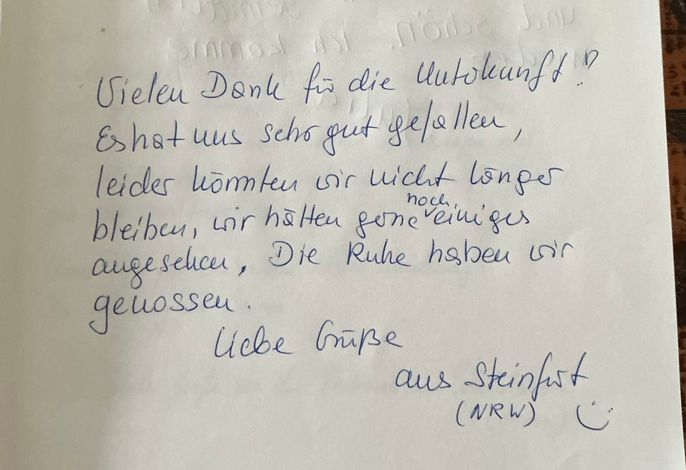 Vielen Dank für die Unterkunft!
Es hat uns sehr gut gefallen,
leider könnten wir nicht länger
bleiben, wir hätten gerne noch einiges
angesehen. Die Ruhe haben wir
genossen.
Liebe Grüße
aus Steinfurt
(NRW)